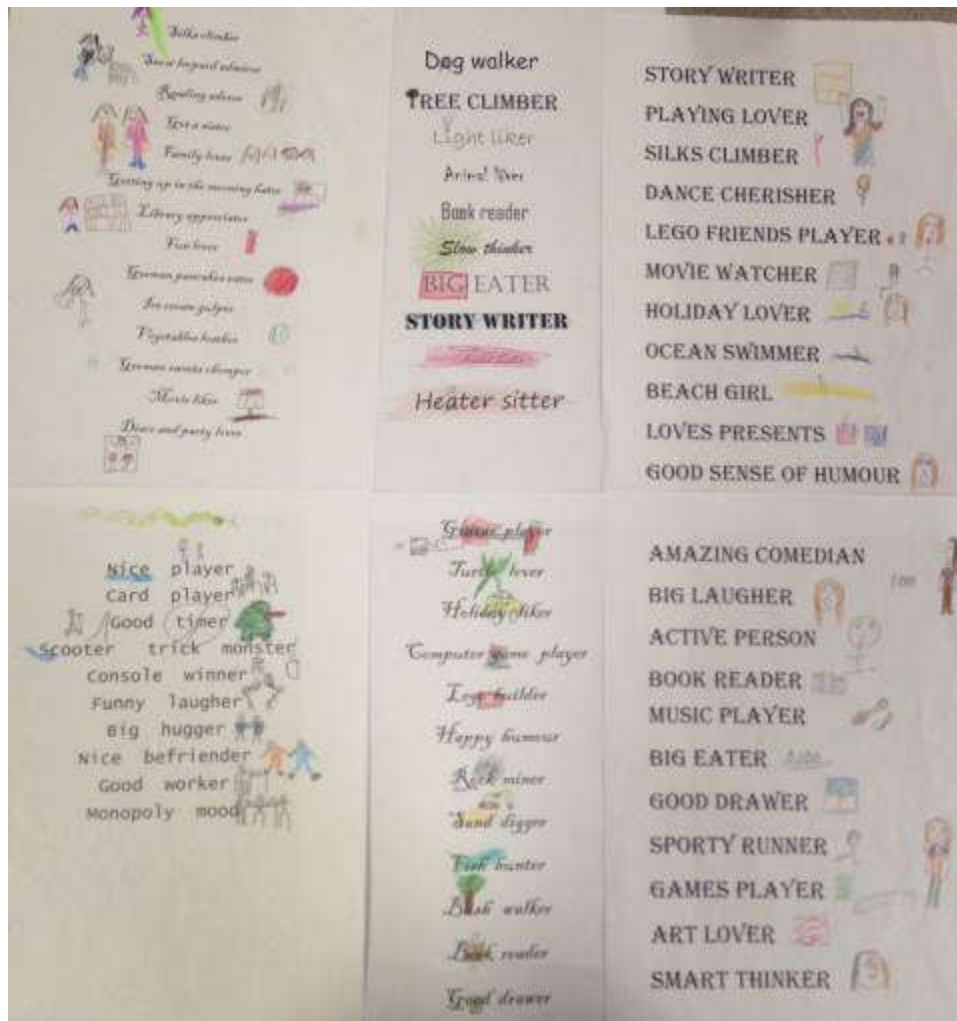 Silks climber
Snow leopard admirer
Reading adorer
Got a sister
Family lover
Getting up in the morning hater
Library appreciator
Fun lover
German pancakes eater
Ice cream gulper
Vegetables
German sweets chomper
Movie liker
Disco and party lover
Dog walker
TREE CLIMBER
Light liker
Animal liker
Book reader
Slow thinker
BIG EATER
STORY WRITER
Heater sitter
STORY WRITER
PLAYING LOVER
SILKS CLIMBER
DANCE CHERISHER
LEGO FRIENDS PLAYER
MOVIE WATCHER
HOLIDAY LOVER
OCEAN SWIMMER
BEACH GIRL
LOVES PRESENTS
GOOD SENSE OF HUMOUR
Nice player
Card player
Good timer
Scooter trick monster
Console winner
Funny laugher
Big hugger
Nice befriender
Good worker
Monopoly mood
Guitar player
Turtle lover
Holiday liker
Computer game player
Lego builder
Happy humour
Rock miner
Sand digger
Fish hunter
Bush walker
Book reader
Good drawer
AMAZING COMEDIAN
BIG LAUGHER
ACTIVE PERSON
BOOK READER
MUSIC PLAYER
BIG EATER
GOOD DRAWER
SPORTY RUNNER
GAMES PLAYER
ART LOVER
SMART THINKER